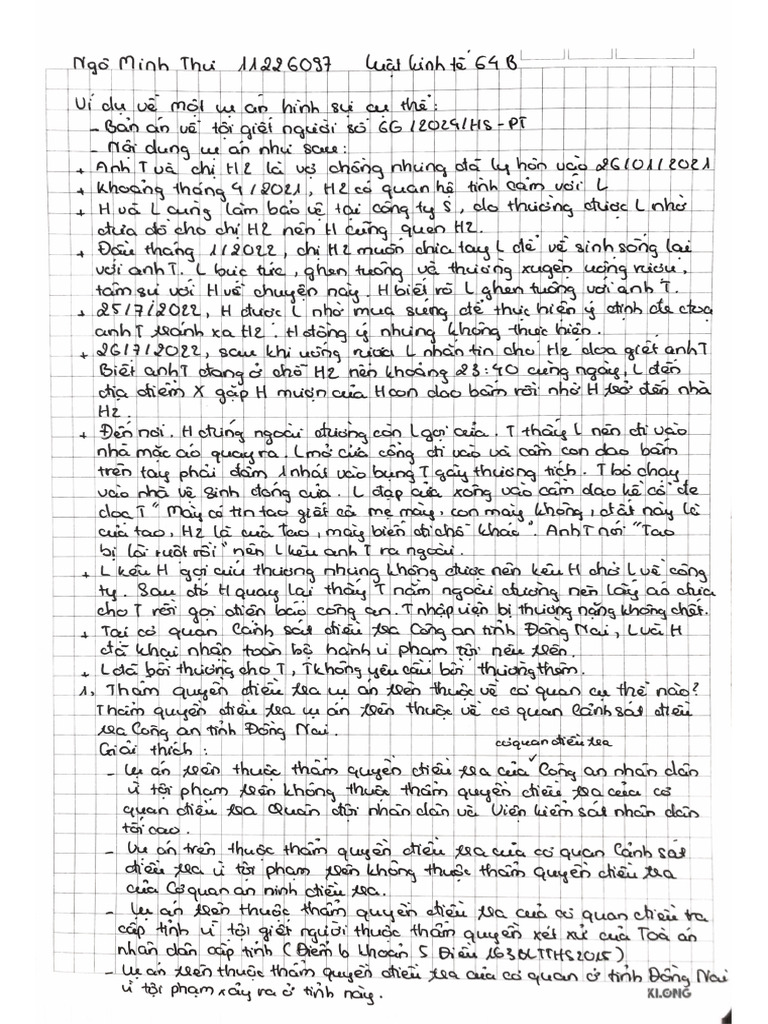 Ngô Minh Thư 11226097 Luật kinh tế 64B
Ví dụ về một vụ án hình sự cụ thể:
- Bản án về tội giết người số 66/2024/HS-PT
- Nội dung vụ án như sau:
+ Anh T và chị H2 là vợ chồng nhưng đã ly hôn vào 26/01/2021
+ Khoảng tháng 4/2021, H2 có quan hệ tình cảm với L
+ H và L cùng làm bảo vệ tại công ty S, do thường được L nhờ
đưa đồ cho chị H2 nên H cũng quen H2.
+ Đầu tháng 1/2022, chị H2 muốn chia tay L để về sinh sống lại
với anh T. L bực tức, ghen tuông và thường xuyên uống rượu,
tâm sự với H về chuyện này. H biết rõ L ghen tuông với anh T.
+ 25/7/2022, H được L nhờ mua súng để thực hiện ý định đe dọa
anh T tránh xa H2. H đồng ý nhưng không thực hiện.
+ 26/7/2022, sau khi uống rượu L nhắn tin cho H2 dọa giết anh T
Biết anh T đang ở chỗ H2 nên khoảng 23:40 cùng ngày, L đến
địa điểm X gặp H mượn của H con dao bấm rồi nhờ H trở đến nhà
H2.
+ Đến nơi. H đứng ngoài đường còn L gọi cửa. T thấy L nên đi vào
nhà mặc áo quay ra. L mở cửa cổng đi vào và cầm con dao bấm
trên tay phải đâm 1 nhát vào bụng T gây thương tích. T bỏ chạy
vào nhà vệ sinh đóng cửa. L đạp cửa xông vào cầm dao kề cổ đe
dọa T "Mày có tin tao giết cả mẹ mày, con mày không, đất này là
của tao, H2 là của tao, mày biến đi chỗ khác". Anh T nói "Tao
bị lòi ruột rồi" nên L kêu anh T ra ngoài.
+ L kêu H gọi cứu thương nhưng không được nên kêu H chở L về công
ty. Sau đó H quay lại thấy T nằm ngoài đường nên lấy áo đưa
cho T rồi gọi điện báo công an. T nhập viện bị thương nặng không chết.
+ Tại cơ quan Cảnh sát điều tra Công an tỉnh Đồng Nai, L và H
đã khai nhận toàn bộ hành vi phạm tội nêu trên.
+ L đã bồi thường cho T, T không yêu cầu bồi thường thêm.
1, Thẩm quyền điều tra vụ án trên thuộc về cơ quan cụ thể nào?
Thẩm quyền điều tra vụ án trên thuộc về cơ quan Cảnh sát điều
tra Công an tỉnh Đồng Nai.
Giải thích:
cơ quan điều tra
- Vụ án trên thuộc thẩm quyền điều tra của Công an nhân dân
vì tội phạm trên không thuộc thẩm quyền điều tra của cơ
quan điều tra Quân đội nhân dân và Viện kiểm sát nhân dân
tối cao.
- Vụ án trên thuộc thẩm quyền điều tra của cơ quan Cảnh sát
điều tra vì tội phạm trên không thuộc thẩm quyền điều tra
của Cơ quan an ninh điều tra.
- Vụ án trên thuộc thẩm quyền điều tra của cơ quan điều tra
cấp tỉnh vì tội giết người thuộc thẩm quyền xét xử của Toà án
nhân dân cấp tỉnh (Điểm b khoản 5 Điều 163 BLTTHS 2015)
- Vụ án trên thuộc thẩm quyền điều tra của cơ quan ở tỉnh Đồng Nai
vì tội phạm xảy ra ở tỉnh này.
KLONG